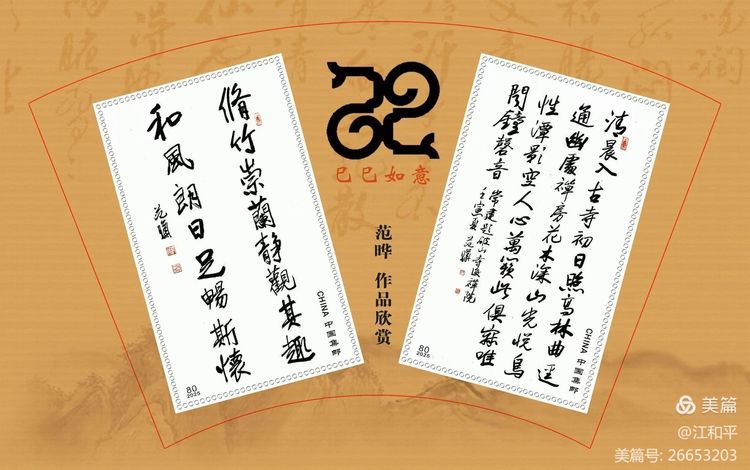 巳巳如意
范晔 作品欣赏
脩竹崇蘭靜觀其趣
和風朗日足暢斯懷
范曄
CHINA 中国集邮
80
2025
清晨入古寺初日照高林曲逕
通幽處禪房花木深山光悅鳥
性潭影空人心萬籟此俱寂唯
聞鐘磬音 常建題破山寺後禪院
壬寅夏 范曄
CHINA 中国集邮
80
2025
美篇
@江和平
美篇号: 26653203